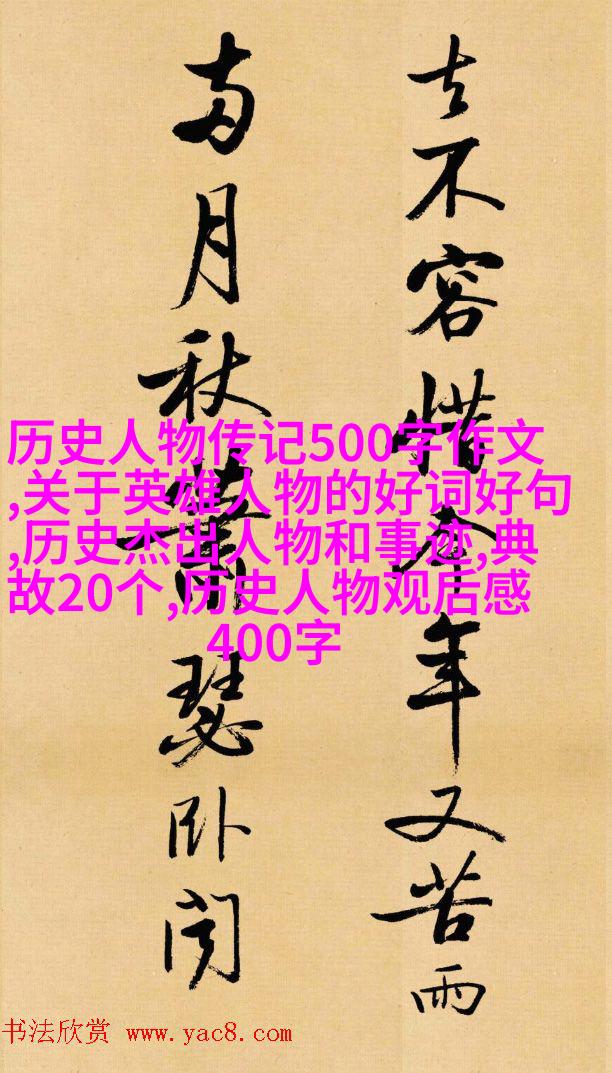 去不容惜今年又苦雨
两月秋蕭瑟卧闻
历史人物传记500字作文
,关于英雄人物的好词好句
,历史杰出人物和事迹,典
故20个,历史人物观后感
400字
书法欣赏 www.yac8.com